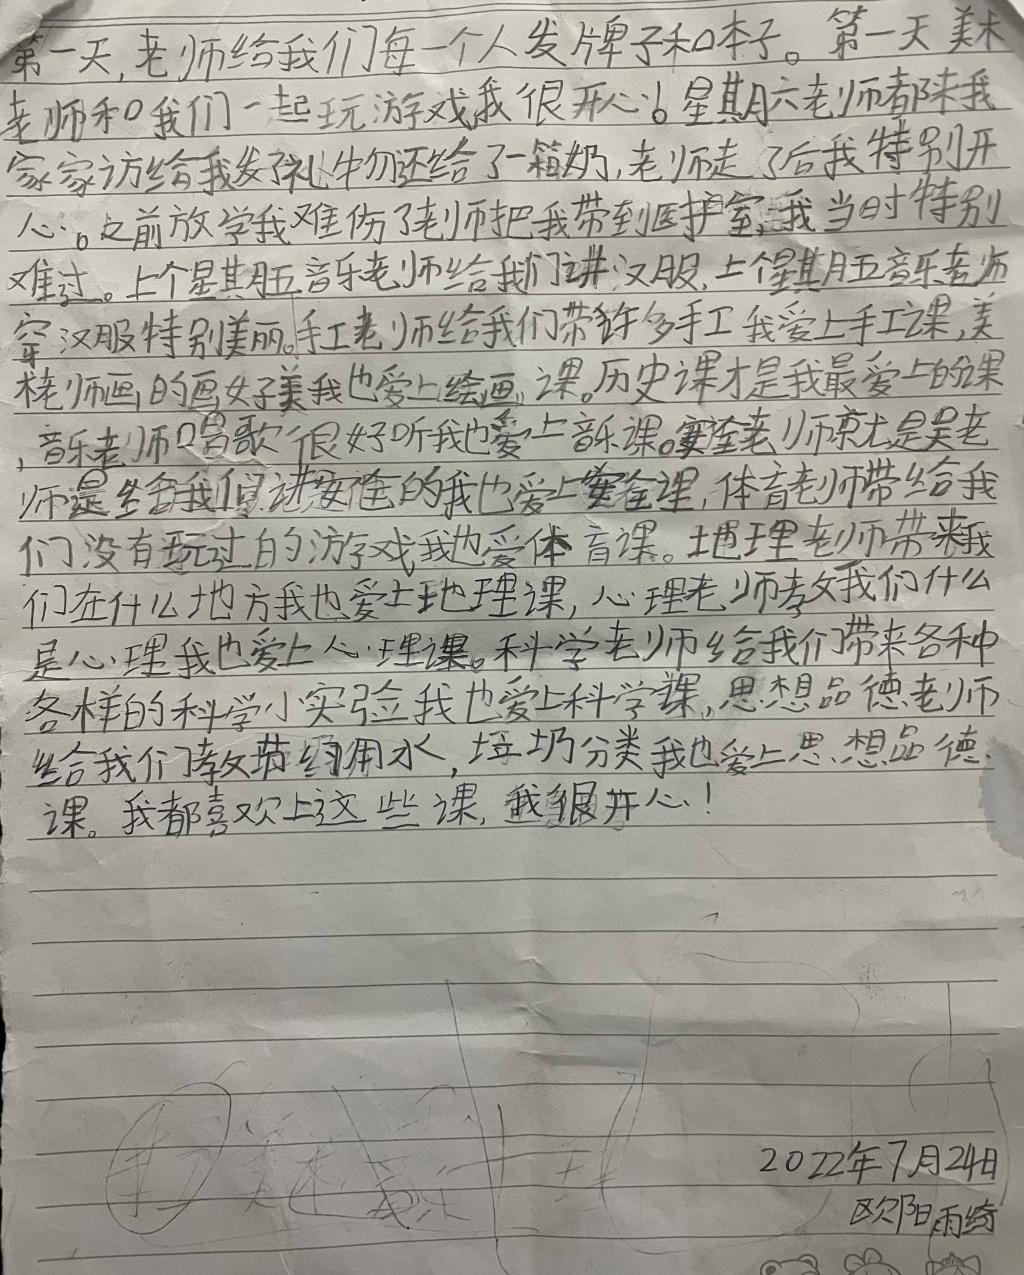 第一天,老师给我们每一个人发牌子和本子。第一天美术
老师和我们一起玩游戏我很开心。星期六老师都来我
家家访给我发了礼物还给了一箱奶,老师走了后我特别开
心。之前放学我难伤了老师把我带到医护室,我当时特别
难过。上个星期五音乐老师给我们讲汉服,上个星期五音乐老师
穿汉服特别美丽。手工老师给我们带许多手工我爱上手工课,美
术老师画的画好美我也爱上绘画课。历史课才是我最爱上的课
,音乐老师唱歌很好听我也爱上音乐课。安全老师就是吴老
师是给我们讲安全的我也爱上安全课,体育老师带给我
们没有玩过的游戏我也爱体育课。地理老师带来我
们在什么地方我也爱上地理课,心理老师教我们什么
是心理我也爱上心理课。科学老师给我们带来各种
各样的科学小实验我也爱上科学课,思想品德老师
给我们教节约用水,垃圾分类我也爱上思想品德
课。我都喜欢上这些课,我很开心!
2022年7月24日
欧阳雨绮